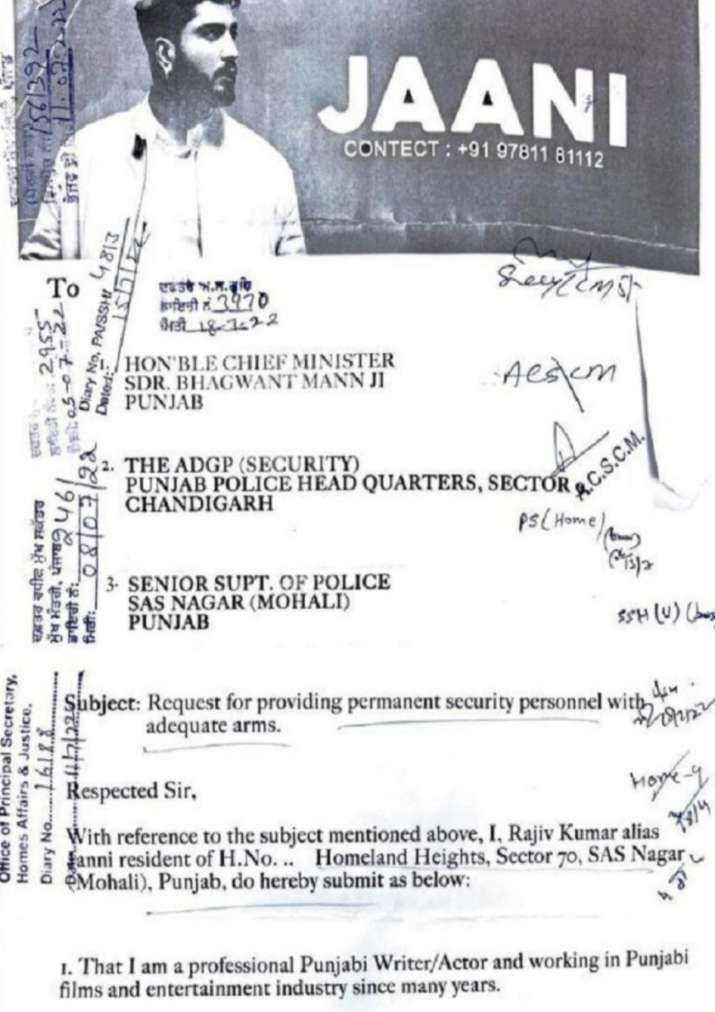 JAANI
CONTECT : +91 97811 81112
156/392
11.07.22
To
3970
ਮਿਤੀ 18.7.22
Diary No. PA/SSH/ 4813
Dated:
2955
05-07-22
1. HON'BLE CHIEF MINISTER
SDR. BHAGWANT MANN JI
PUNJAB
ACS/CM
2. THE ADGP (SECURITY)
PUNJAB POLICE HEAD QUARTERS, SECTOR
CHANDIGARH
A.C.S.C.M.
PS(Home)
ਮੁੱਖ ਮੰਤਰੀ, ਪੰਜਾਬ
ਡਾਇਰੀ ਨੰ:
ਮਿਤੀ: 08/07/22
3. SENIOR SUPT. OF POLICE
SAS NAGAR (MOHALI)
PUNJAB
Office of Principal Secretary,
Homes Affairs & Justice.
Diary No. 16188
11/7/22
Subject: Request for providing permanent security personnel with
adequate arms.
Respected Sir,
With reference to the subject mentioned above, I, Rajiv Kumar alias
anni resident of H.No. .. Homeland Heights, Sector 70, SAS Nagar
(Mohali), Punjab, do hereby submit as below:
1. That I am a professional Punjabi Writer/Actor and working in Punjabi
films and entertainment industry since many years.